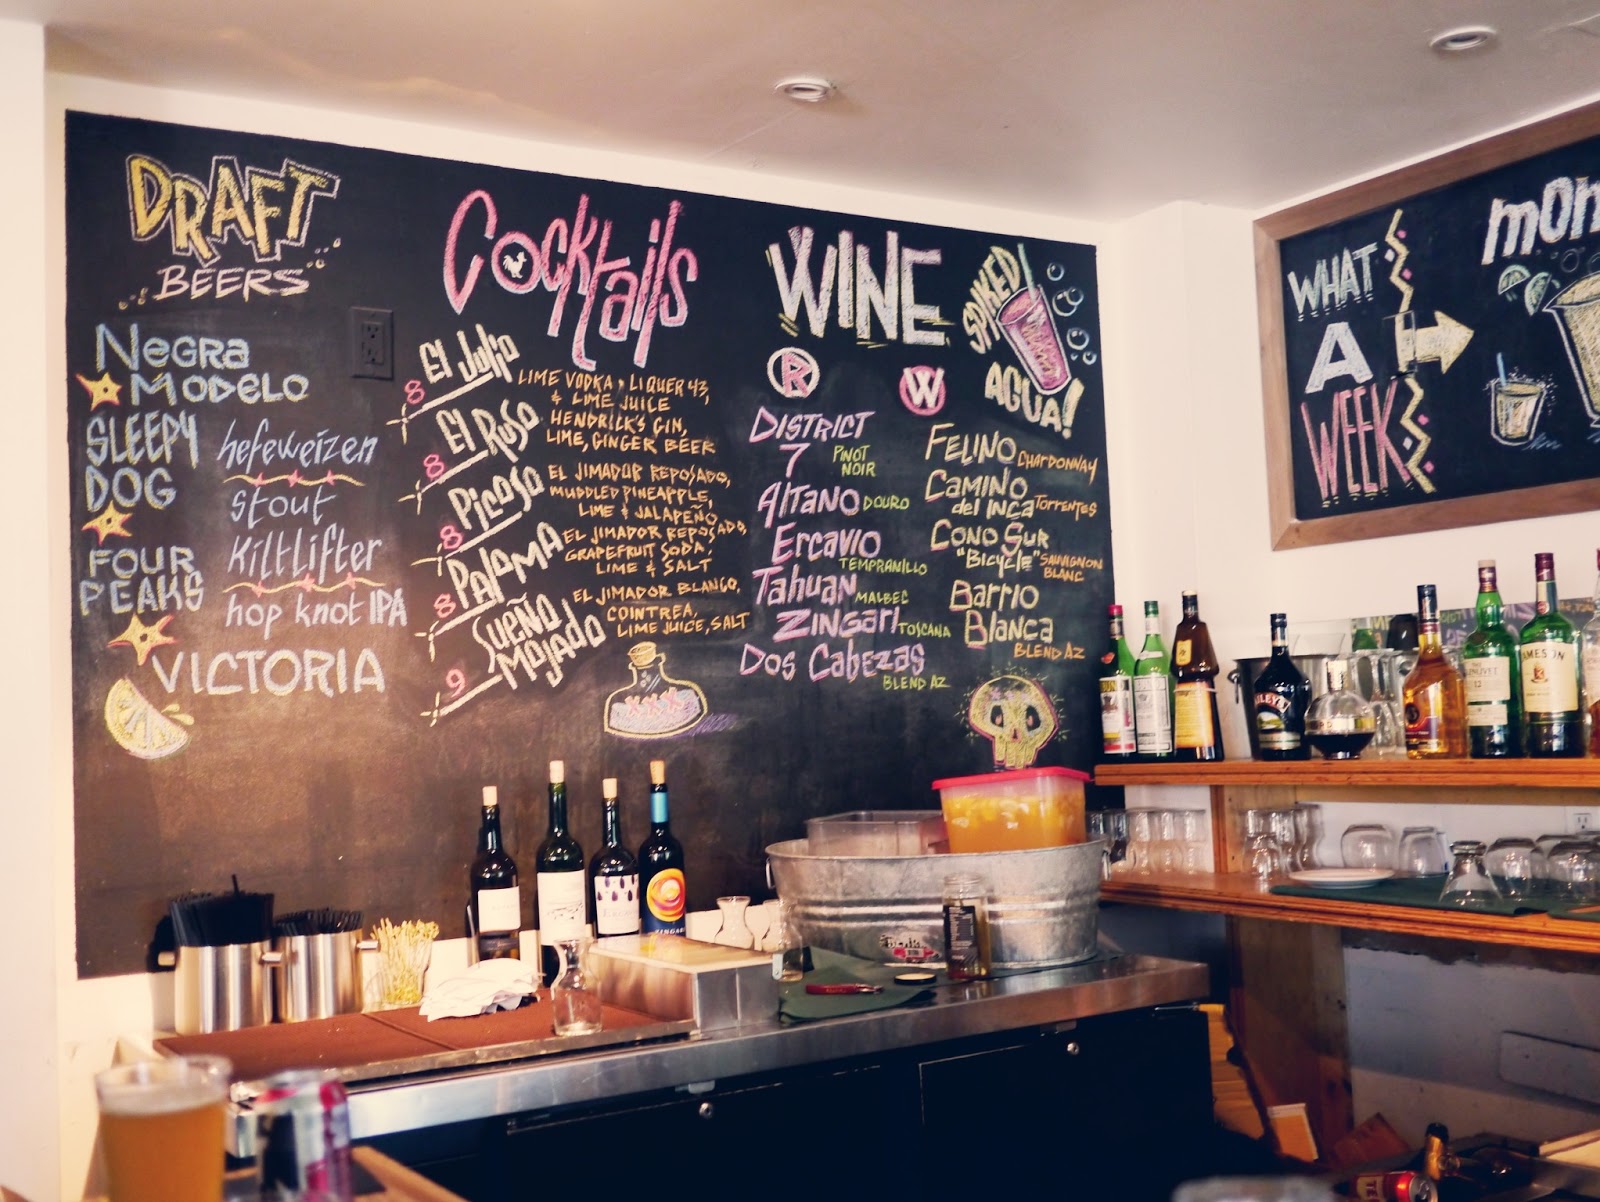 DRAFT
BEERS
NEGRA
MODELO
SLEEPY
DOG
hefeweizen
stout
FOUR
PEAKS
Kiltlifter
hop knot IPA
VICTORIA
Cocktails
8 El Julio
LIME VODKA, LIQUER 43,
& LIME JUICE
8 El Ruso
HENDRICK'S GIN,
LIME, GINGER BEER
8 Picoso
EL JIMADOR REPOSADO,
MUDDLED PINEAPPLE,
LIME & JALAPEÑO
8 PALAMA
EL JIMADOR REPOSADO,
GRAPEFRUIT SODA,
LIME & SALT
9 SUEÑO
MOJADO
EL JIMADOR BLANCO,
COINTREA,
LIME JUICE, SALT
XXX
WINE
R
DISTRICT
7 PINOT
NOIR
Altano DOURO
Ercavio
TEMPRANILLO
Tahuan MALBEC
ZINGARI TOSCANA
Dos Cabezas
BLEND AZ
W
FELINO CHARDONNAY
CAMINO
del INCA TORRENTES
CONO SUR
"Bicycle" SAUVIGNON
BLANC
Barrio
Blanca
BLEND AZ
SPIKED
AGUA!
WHAT
A
WEEK
MON
JAMESON
ZINGARI